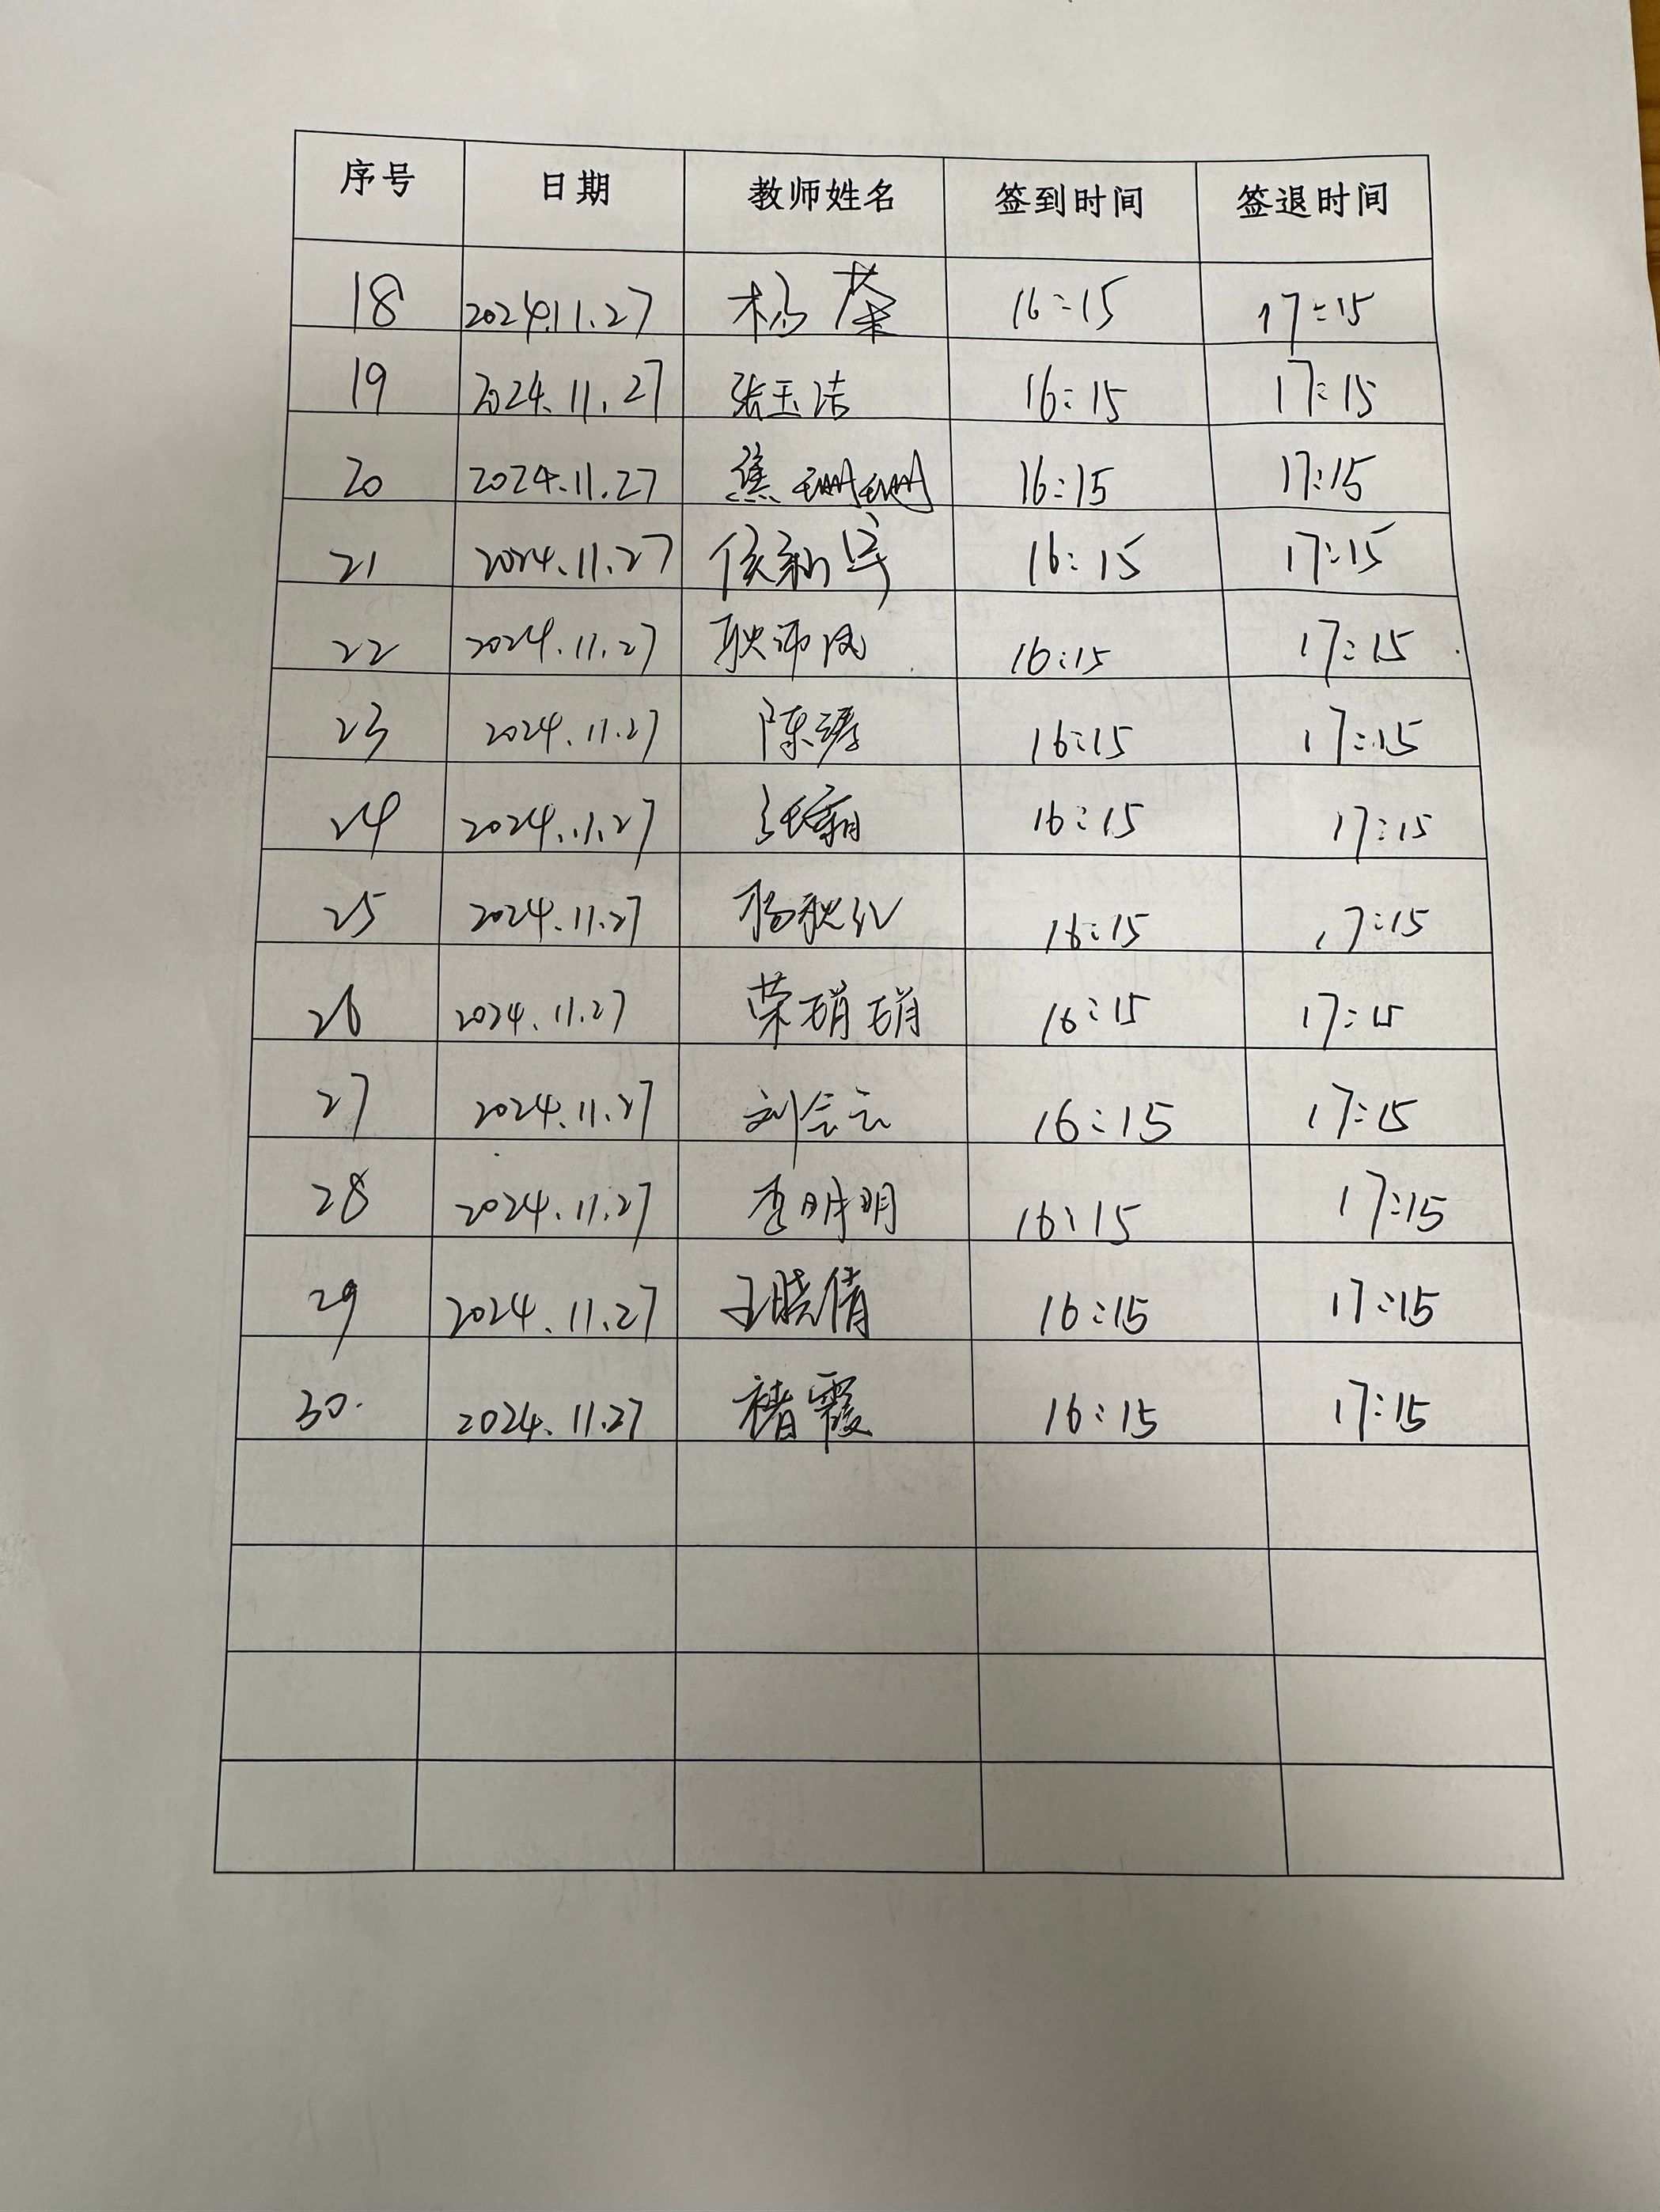 序号 日期 教师姓名 签到时间 签退时间
18 2024.11.27 杨 16:15 17:15
19 2024.11.27 张玉洁 16:15 17:15
20 2024.11.27 焦珊珊 16:15 17:15
21 2024.11.27 侯新军 16:15 17:15
22 2024.11.27 耿沛凤 16:15 17:15
23 2024.11.27 陈 16:15 17:15
24 2024.11.27 16:15 17:15
25 2024.11.27 杨秋红 16:15 17:15
26 2024.11.27 荣娟娟 16:15 17:15
27 2024.11.27 刘会云 16:15 17:15
28 2024.11.27 李明明 16:15 17:15
29 2024.11.27 王晓倩 16:15 17:15
30. 2024.11.27 褚霞 16:15 17:15